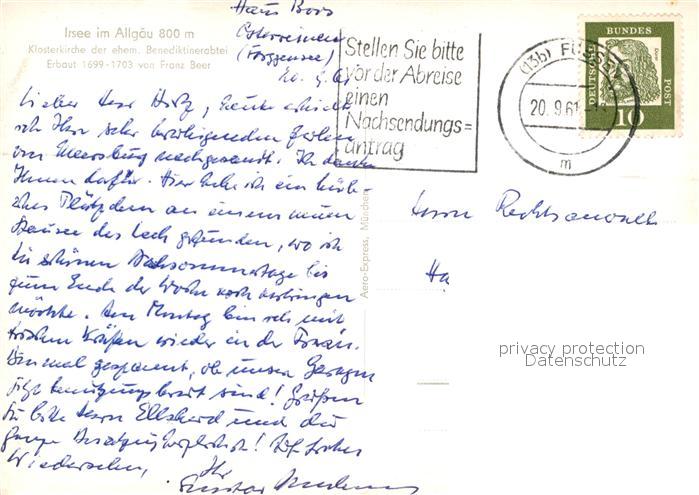 Irsee im Allgäu 800 m
Klosterkirche der ehem. Benediktinerabtei
Erbaut 1699-1703 von Franz Beer
Haus Boos
Osterreinen
(Forggensee)
20. 9. 61
Stellen Sie bitte
vor der Abreise
einen
Nachsendungs=
antrag
(13b) FÜSSEN
20. 9. 61
m
DEUTSCHE BUNDES POST
10
Lieber Herr Holz, heute erhielt
ich Ihre sehr
von Meersburg nachgesandt. Ich danke
Ihnen dafür. Hier habe ich ein hüb-
sches Plätzchen an einem neuen
Stausee des Lech gefunden, wo ich
die schönen Nachsommertage bis
zum Ende der Woche noch verbringen
möchte. Am Montag bin ich mit
frischen Kräften wieder in der
Bin mal gespannt, ob unsere Garagen
jetzt benutzungsbereit sind! Grüßen
Sie bitte Herrn und die
ganze Besatzung herzlichst! Auf frohes
Wiedersehen,
Ihr
Gustav
Aero-Express, München
Herrn Rechtsanwalt
Ha
privacy protection
Datenschutz